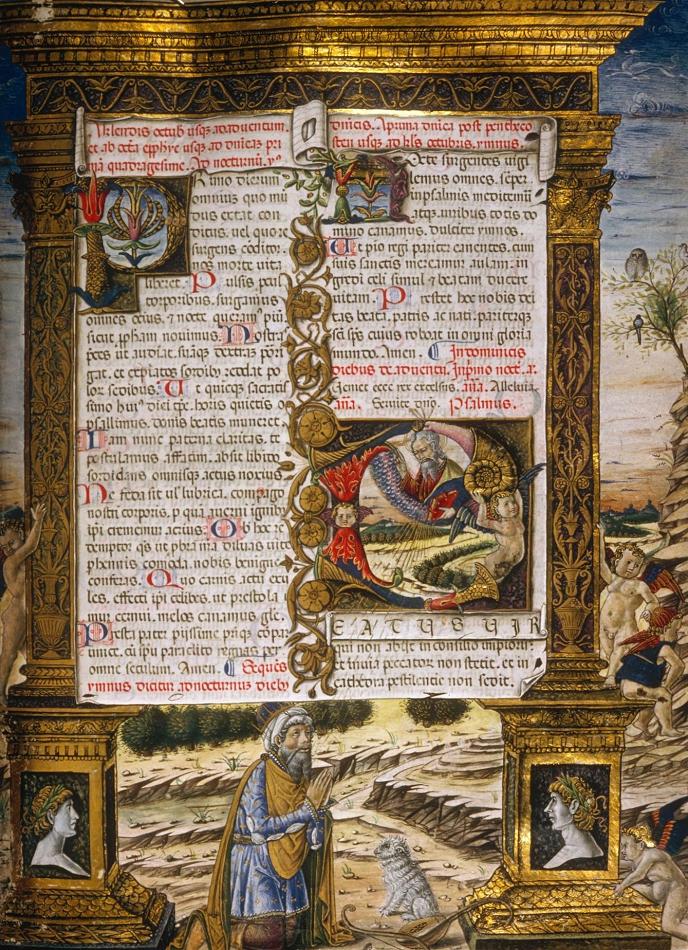 A klendis octub usqz ad aduentum.
et ab octa epyhie usqz ad dnicaz pri
mā quadragesime. Ad nocturnū. yº
P rimo dierum
omnium quo mū
dus extat con
ditus. uel quo r
surgens cōditor.
morte uita
liberet. Pulsis pcul
torporibus. surgamus
omnes ocius. et nocte queramº piū
sicut ppham nouimus. Nostra
pces ut audiat. suāqz dextraz pori
gat. et expiatos sordibz reddat po
lor sedibus. Ut quicqz sacratis
simo huiº diei tpe. horis quietis
psallimus. donis beatis muneret.
Iam nunc paterna claritas. te
postulamus affatim. absit libito
sordidans. omnisqz actus noxius.
Ne feda sit ul lubrica. compago
nostri corporis. p qua auerni ignibz
ipi crememur acrius. Ob hoc re
demptor qs ut pbra nra diluas uite
phennis comoda. nobis benigne
conferas. Quo carnis actu exu
les. effecti ipi celibes. ut prestola
mur cernui. melos canamus gle.
Presta pater piissime patriqz compar
unice. cū spu paraclito regnās per
omne seculum. Amen. Seques
ymnus dicitur ad nocturnus dieb
dnicis. A prima dnica post pentheco
sten usqz ad kls octubris. ymnus.
N octe surgentes uigi
lemus omnes. semper
in psalmis meditemur
atqz. uiribus totis do
mino canamus. dulciter ymnos.
Ut pio regi pariter canentes. cum
suis sanctis mereamur aulam. in
gredi celi simul et beatam ducere
uitam. Prestet hoc nobis dei
tas beata. patris ac nati. pariterqz
sci sps cuius reboat in omni gloria
mundo. Amen. In dominicis
diebus de aduentu. In primo noct. a.
Veniet ecce rex excelsus. aña. Alleluia
aña. Seruite dnō. Psalmus.
B
EATVS VIR
qui non abijt in consilio impiorum
et in uia peccator non stetit. et in
cathedra pestilentie non sedit.